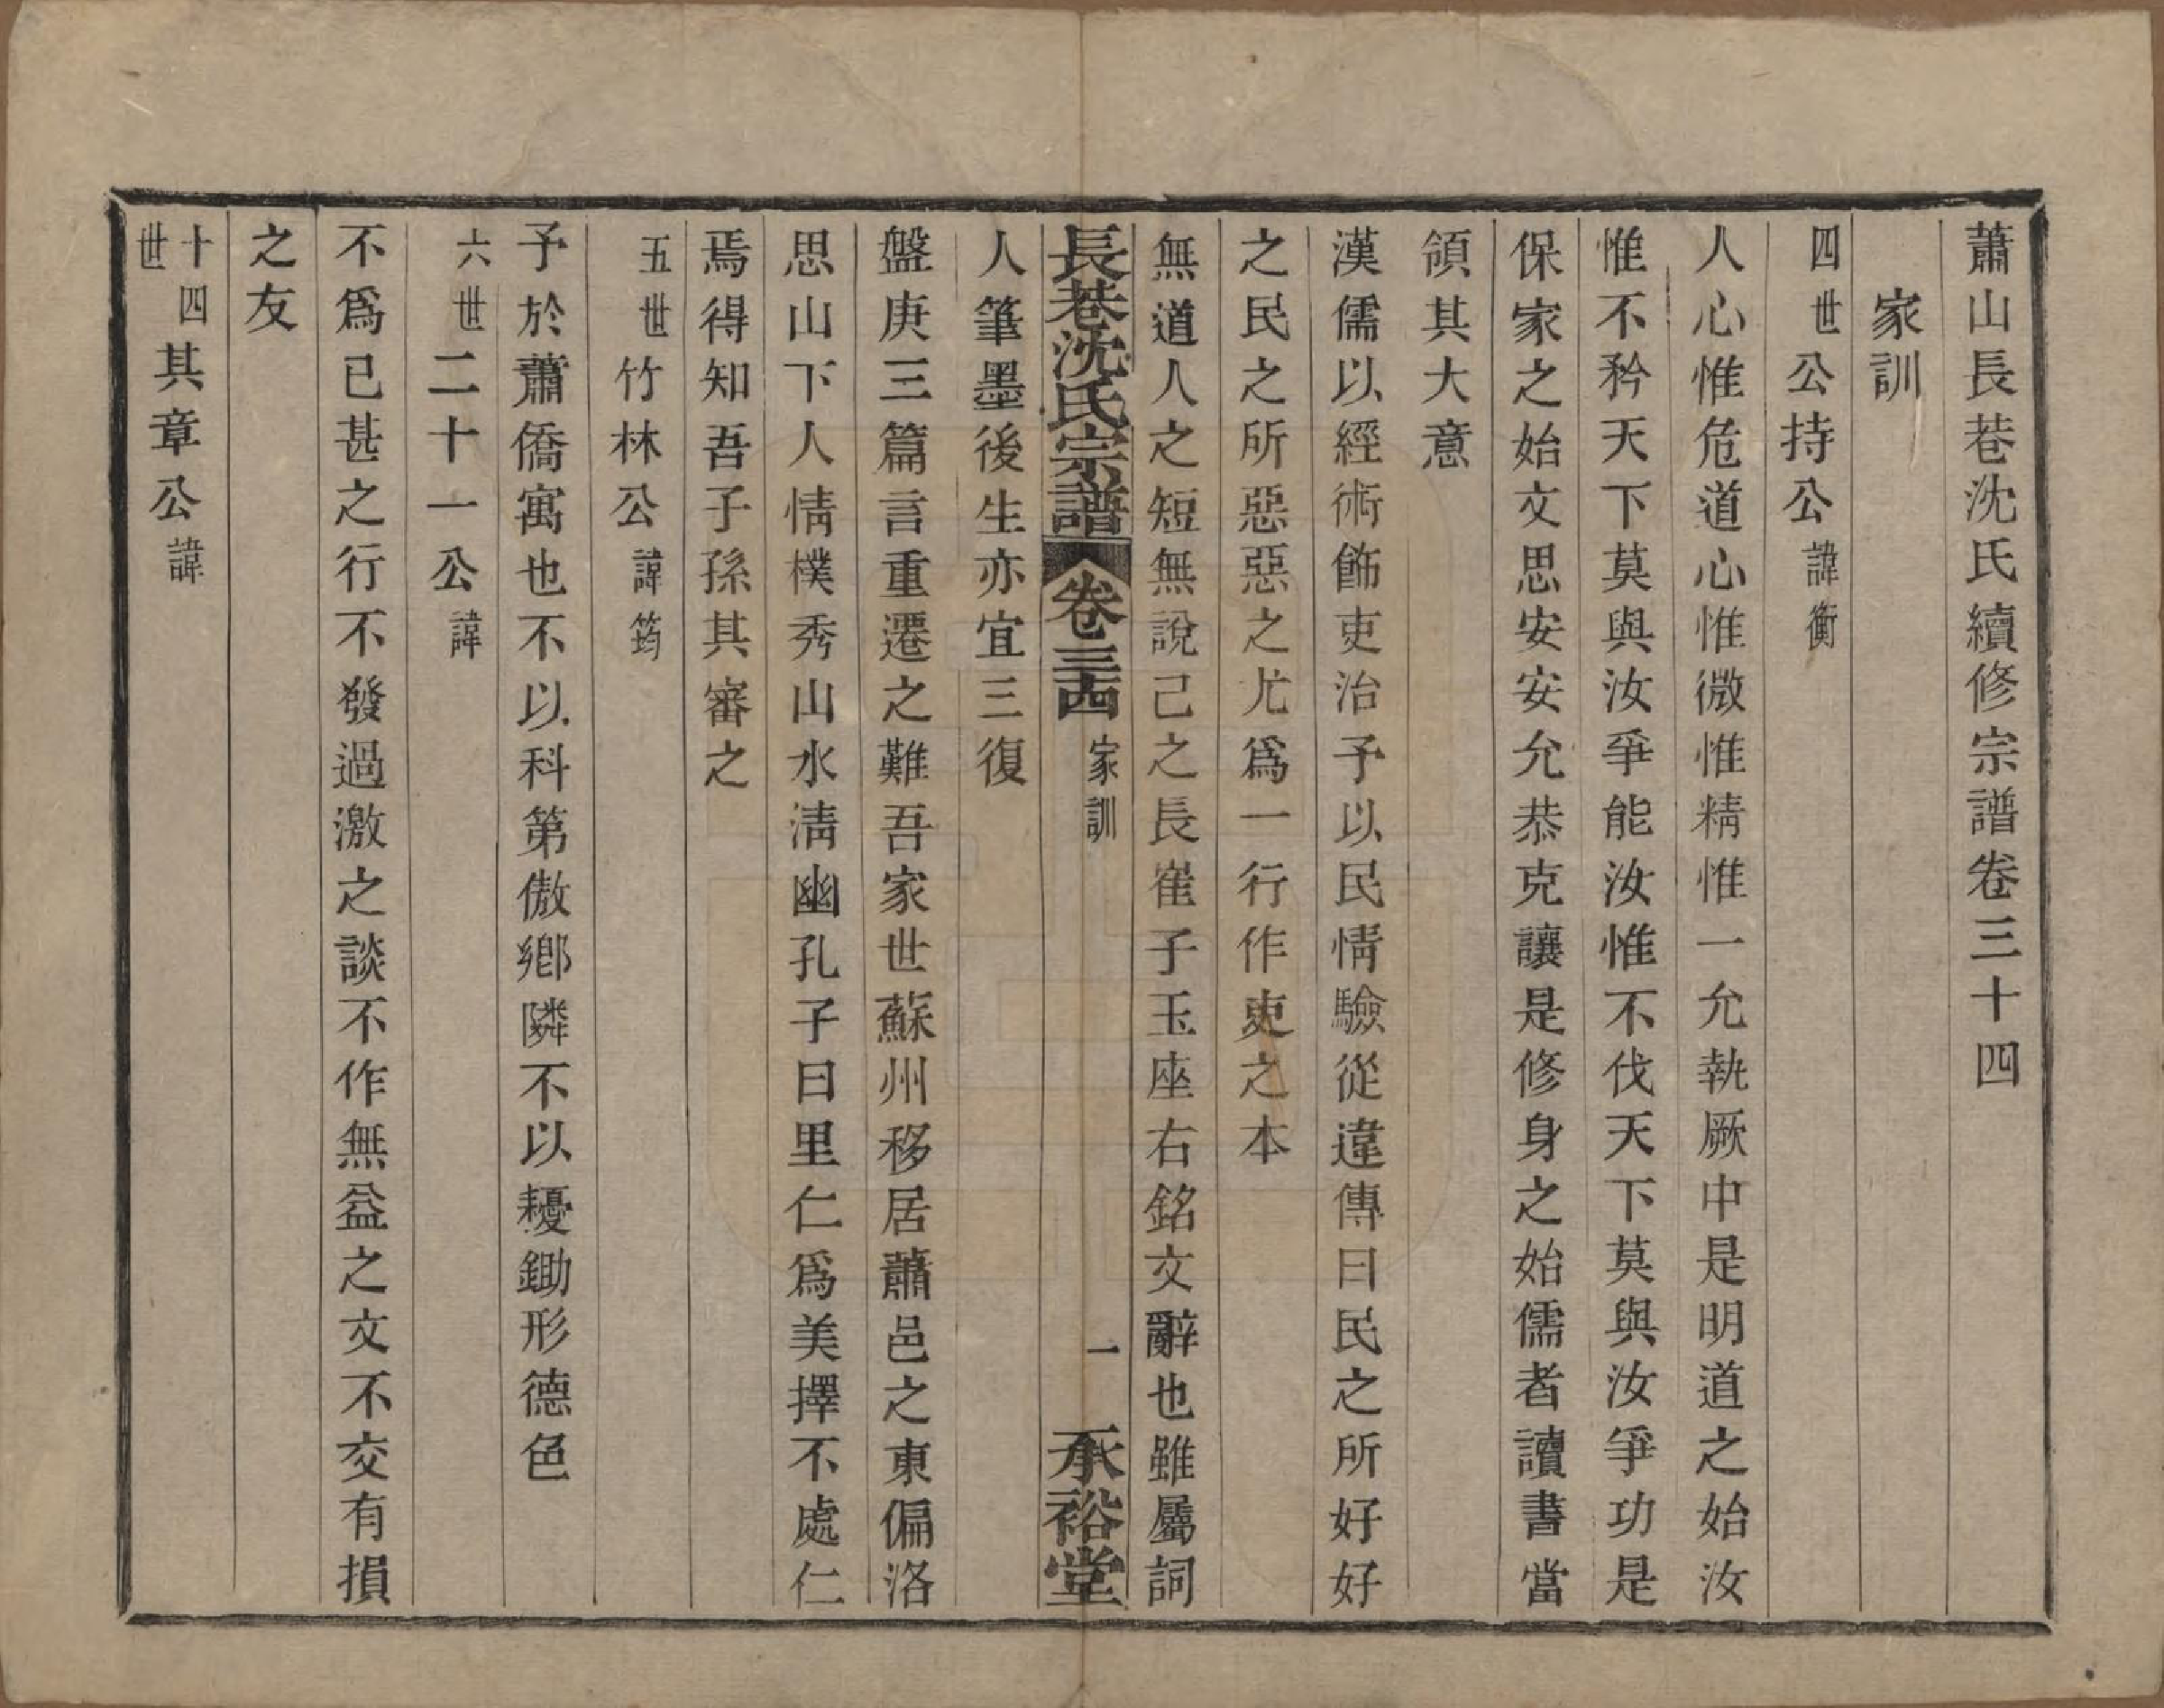 蕭山長巷沈氏續修宗譜卷三十四
家訓
四世公持公諱衡
人心惟危道心惟微惟精惟一允執厥中是明道之始汝
惟不矜天下莫與汝爭能汝惟不伐天下莫與汝爭功是
保家之始文思安安允恭克讓是修身之始儒者讀書當
領其大意
漢儒以經術飾吏治予以民情驗從違傳曰民之所好好
之民之所惡惡之尤爲一行作吏之本
無道人之短無說己之長崔子玉座右銘文辭也雖屬詞
長巷沈氏宗譜 卷三十四 家訓 一 承裕堂
人筆墨後生亦宜三復
盤庚三篇言重遷之難吾家世蘇州移居蕭邑之東偏洛
思山下人情樸秀山水淸幽孔子曰里仁爲美擇不處仁
焉得知吾子孫其審之
五世竹林公諱筠
予於蕭僑寓也不以科第傲鄕隣不以耰鋤形德色
六世二十一公諱
不爲已甚之行不發過激之談不作無益之文不交有損
之友
十四世其章公諱